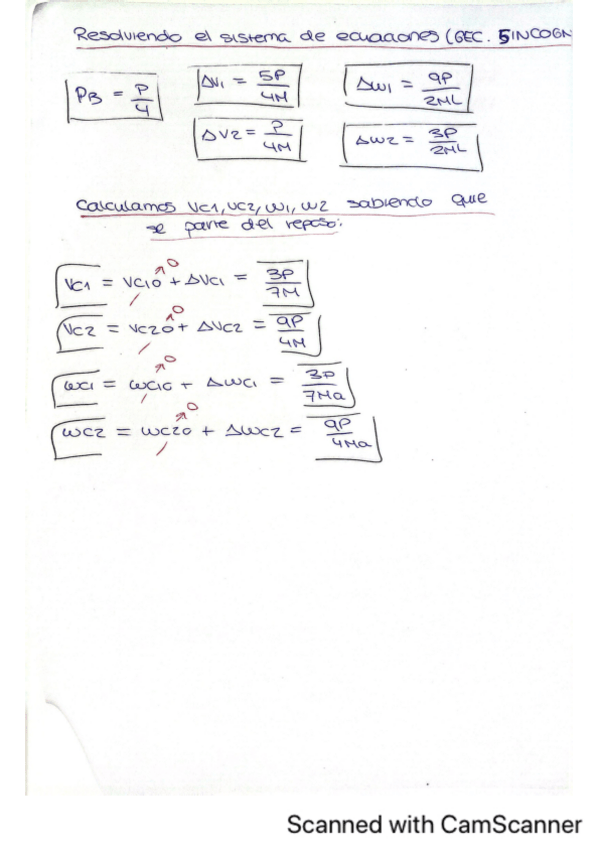 Resolviendo el sistema de ecuaciones (6EC. 5INCOGN
PB = P/4
Δv1 = 5P/4M
Δw1 = 9P/2ML
Δv2 = P/4M
Δw2 = 3P/2ML
Calculamos VC1, VC2, w1, w2 sabiendo que
se parte del reposo:
VC1 = VC10 →0 + ΔVC1 = 3P/7M
VC2 = VC20 →0 + ΔVC2 = 9P/4M
wC1 = wC10 →0 + ΔwC1 = 3P/7Ma
wC2 = wC20 →0 + ΔwC2 = 9P/4Ma
Scanned with CamScanner